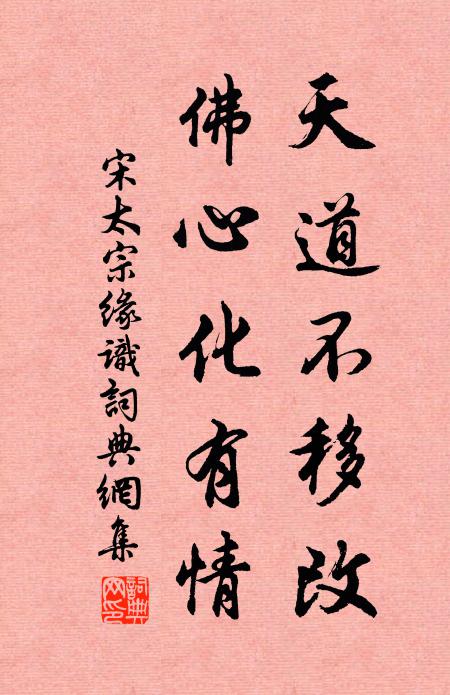 天道不移改
佛心化有情
宋太宗缘識詞典網集
詞典
网印